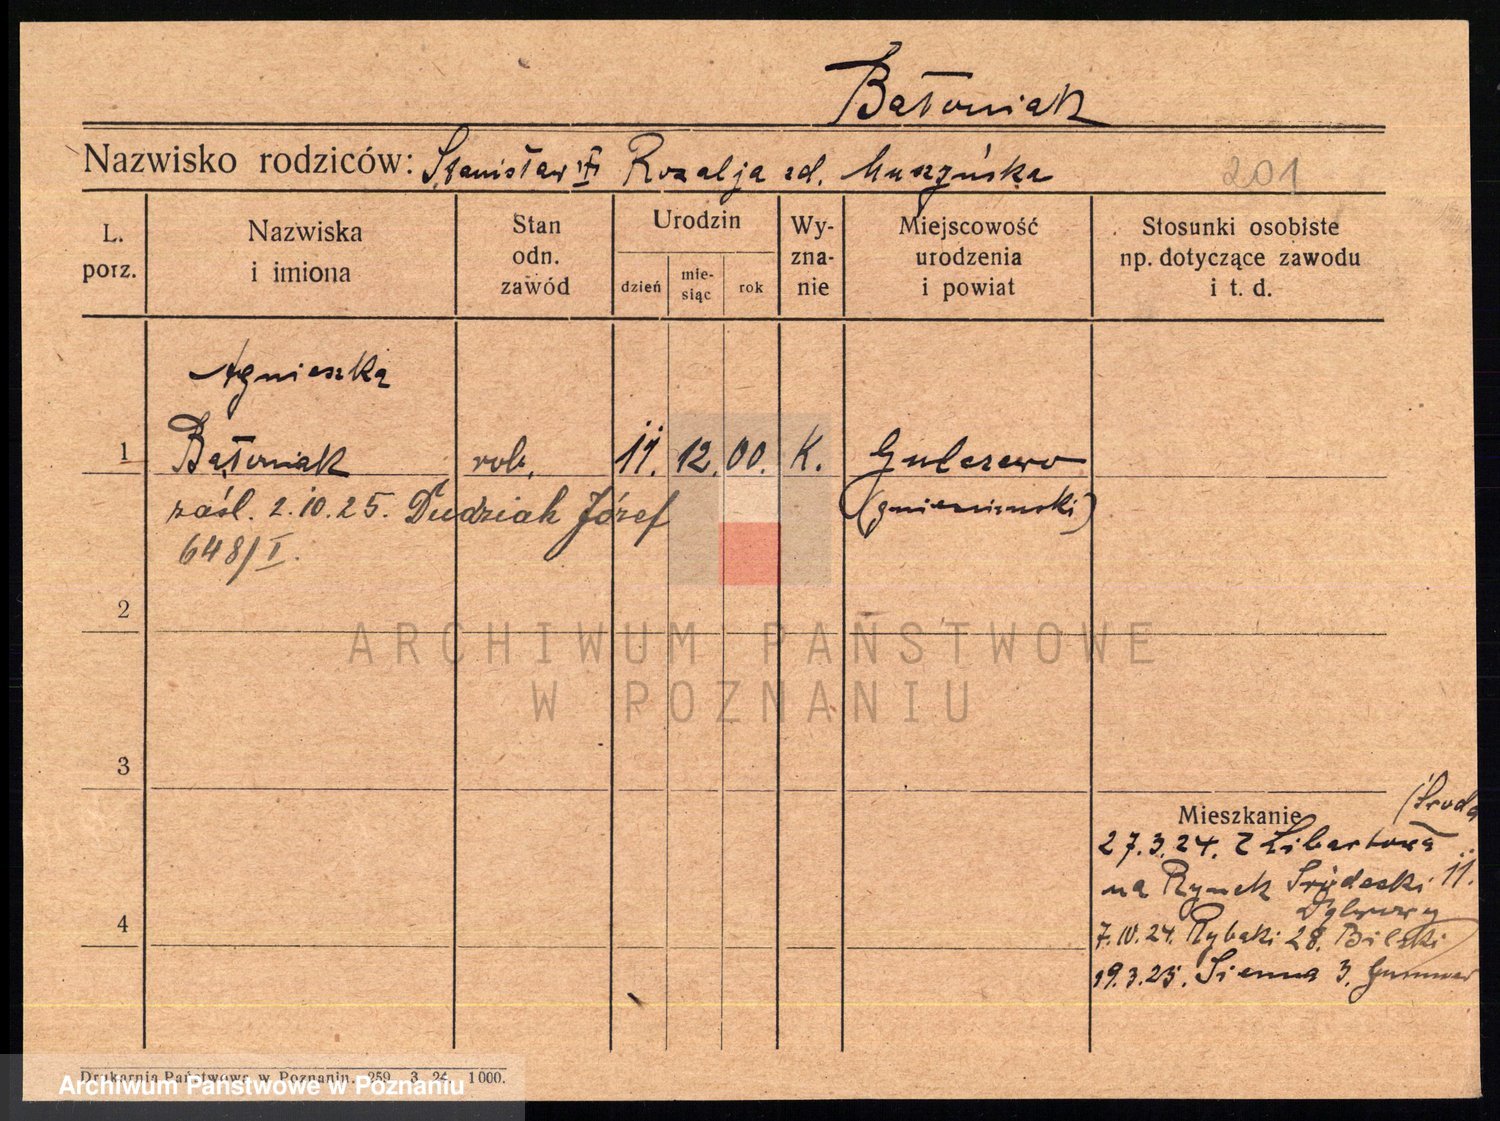 Bątoniak
Nazwisko rodziców: Stanisław Rozalja zd. Muszyńska 201
L. porz.
Nazwiska i imiona
Stan odn. zawód
Urodzin
dzień
mie-
siąc
rok
Wy-
zna-
nie
Miejscowość
urodzenia
i powiat
Stosunki osobiste
np. dotyczące zawodu
i t. d.
Agnieszka
1 Bątoniak rob. 11. 12. 00. K. Gulczewo
zaśl. 2.10.25. Dudziak Józef (gnieźnieński)
648/I.
2
3
4
Mieszkanie (Środa
27.3.24. z Libartowa
na Rynek Śródecki 11.
7.IV.24. Rybaki 28. Bilski
19.3.25. Sienna 3.
ARCHIWUM PAŃSTWOWE
W POZNANIU
Drukarnia Państwowa w Poznaniu. 259. 3. 24. 1000.
Archiwum Państwowe w Poznaniu